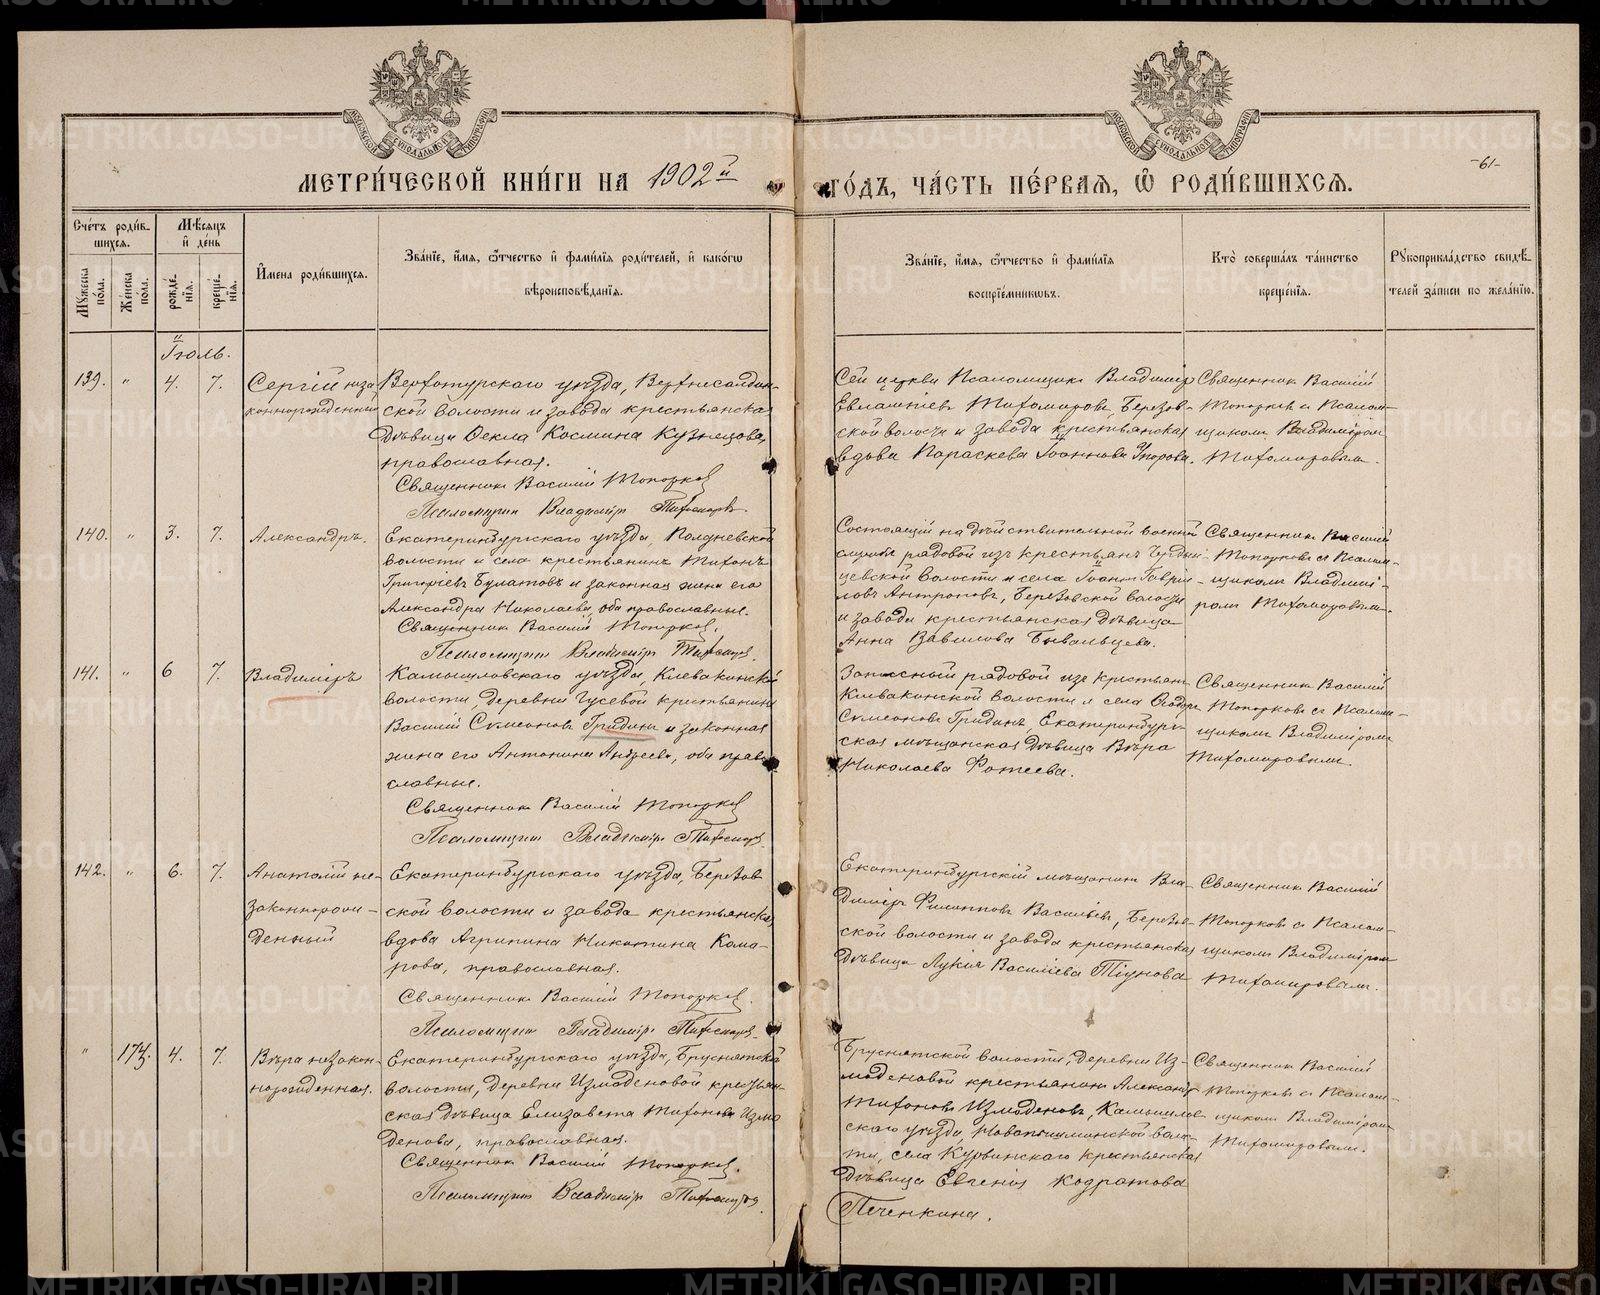 МЕТРИ́ЧЕСКОЙ КНИ́ГИ НА 1902й ГО́ДЪ, ЧА́СТЬ ПЕ́РВАЯ, Ѡ РОДИ́ВШИХСЯ.
-61-
Сче́тъ роди́вшихся.
Му́жеска по́ла.
Же́нска по́ла.
Мѣ́сяцъ и де́нь
рожде́нїя.
креще́нїя.
И҆мена роди́вшихся.
Зва́нїе, и҆́мя, ѻ҆́тчество и҆ фами́лїя роди́телей, и҆ како́гѡ
вѣроисповѣ́данїя.
Зва́нїе, и҆́мя, ѻ҆́тчество и҆ фами́лїя
воспрїе́мниковъ.
Кто̀ соверша́лъ та́инство
креще́нїя.
Рꙋкоприкла́дство свидѣ́-
телей за́писи по жела́нїю.
Іюль.
139. " 4. 7.
Сергій неза-
коннорожденный
Верхотурскаго уѣзда, Верхнесалдин-
ской волости и завода крестьянская
дѣвица Ѳекла Космина Кузнецова,
православная.
Священникъ Василій Топорковъ
Псаломщикъ Владиміръ Тихомировъ.
Сей церкви Псаломщикъ Владиміръ
Евлампіевъ Тихомировъ, Березов-
ской волости и завода крестьянская
вдова Параскева Іоаннова
Священникъ Василій
Топорковъ съ Псалом-
щикомъ Владиміромъ
Тихомировымъ.
140. " 3. 7.
Александръ.
Екатеринбургскаго уѣзда, Полдневской
волости и села крестьянинъ Тихонъ
Григорьевъ Булатовъ и законная жена его
Александра Николаева, оба православные.
Священникъ Василій Топорковъ.
Псаломщикъ Владиміръ Тихомировъ.
Состоящій на дѣйствительной военной
службѣ рядовой изъ крестьянъ
волости и села Іоаннъ Гаврии-
ловъ Антроповъ, Березовской волости
и завода крестьянская дѣвица
Анна Вавилова Бывальцева.
Священникъ Василій
Топорковъ съ Псалом-
щикомъ Владимі-
ромъ Тихомировымъ.
141. " 6 7.
Владиміръ
Камышловскаго уѣзда, Клевакинской
волости, деревни Гусевой крестьянинъ
Василій Симеоновъ Гридинъ и законная
жена его Антонина Андреева, оба право-
славные.
Священникъ Василій Топорковъ
Псаломщикъ Владиміръ Тихомировъ.
Запасный рядовой изъ крестьянъ
Клевакинской волости и села Ѳеодоръ
Симеоновъ Гридинъ, Екатеринбург-
ская мѣщанская дѣвица Вѣра
Николаева Фотеева.
Священникъ Василій
Топорковъ съ Псалом-
щикомъ Владиміромъ
Тихомировымъ.
142. " 6. 7.
Анатолій не-
законнорож-
денный
Екатеринбургскаго уѣзда, Березов-
ской волости и завода крестьянская
вдова Агрипина Никитина Кома-
рова, православная.
Священникъ Василій Топорковъ.
Псаломщикъ Владиміръ Тихомировъ.
Екатеринбургскій мѣщанинъ Вла-
диміръ Филипповъ Васильевъ, Березов-
ской волости и завода крестьянская
дѣвица Лукія Василіева Тіунова
Священникъ Василій
Топорковъ съ Псалом-
щикомъ Владиміромъ
Тихомировымъ.
" 173. 4. 7.
Вѣра незакон-
норожденная.
Екатеринбургскаго уѣзда, Бруснятской
волости, деревни Измоденовой крестьян-
ская дѣвица Елизавета Тихонова Измо-
денова, православная.
Священникъ Василій Топорковъ.
Псаломщикъ Владиміръ Тихомировъ.
Бруснятской волости, деревни Из-
моденовой крестьянинъ Александръ
Тихоновъ Измоденовъ, Камышлов-
скаго уѣзда, Новопышминской волос-
ти, села крестьянская
дѣвица Евгенія Кодратова
Печенкина.
Священникъ Василій
Топорковъ съ Псалом-
щикомъ Владиміромъ
Тихомировымъ.
METRIKI.GASO-URAL.RU